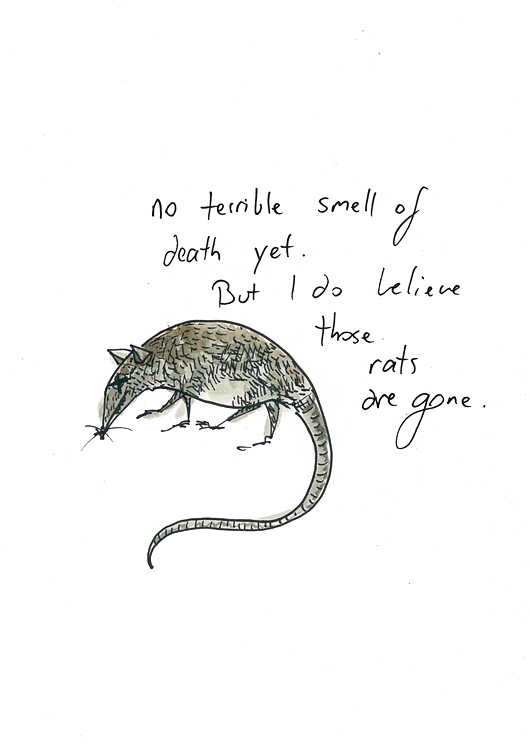 no terrible smell of
death yet.
But I do believe
those
rats
are gone.